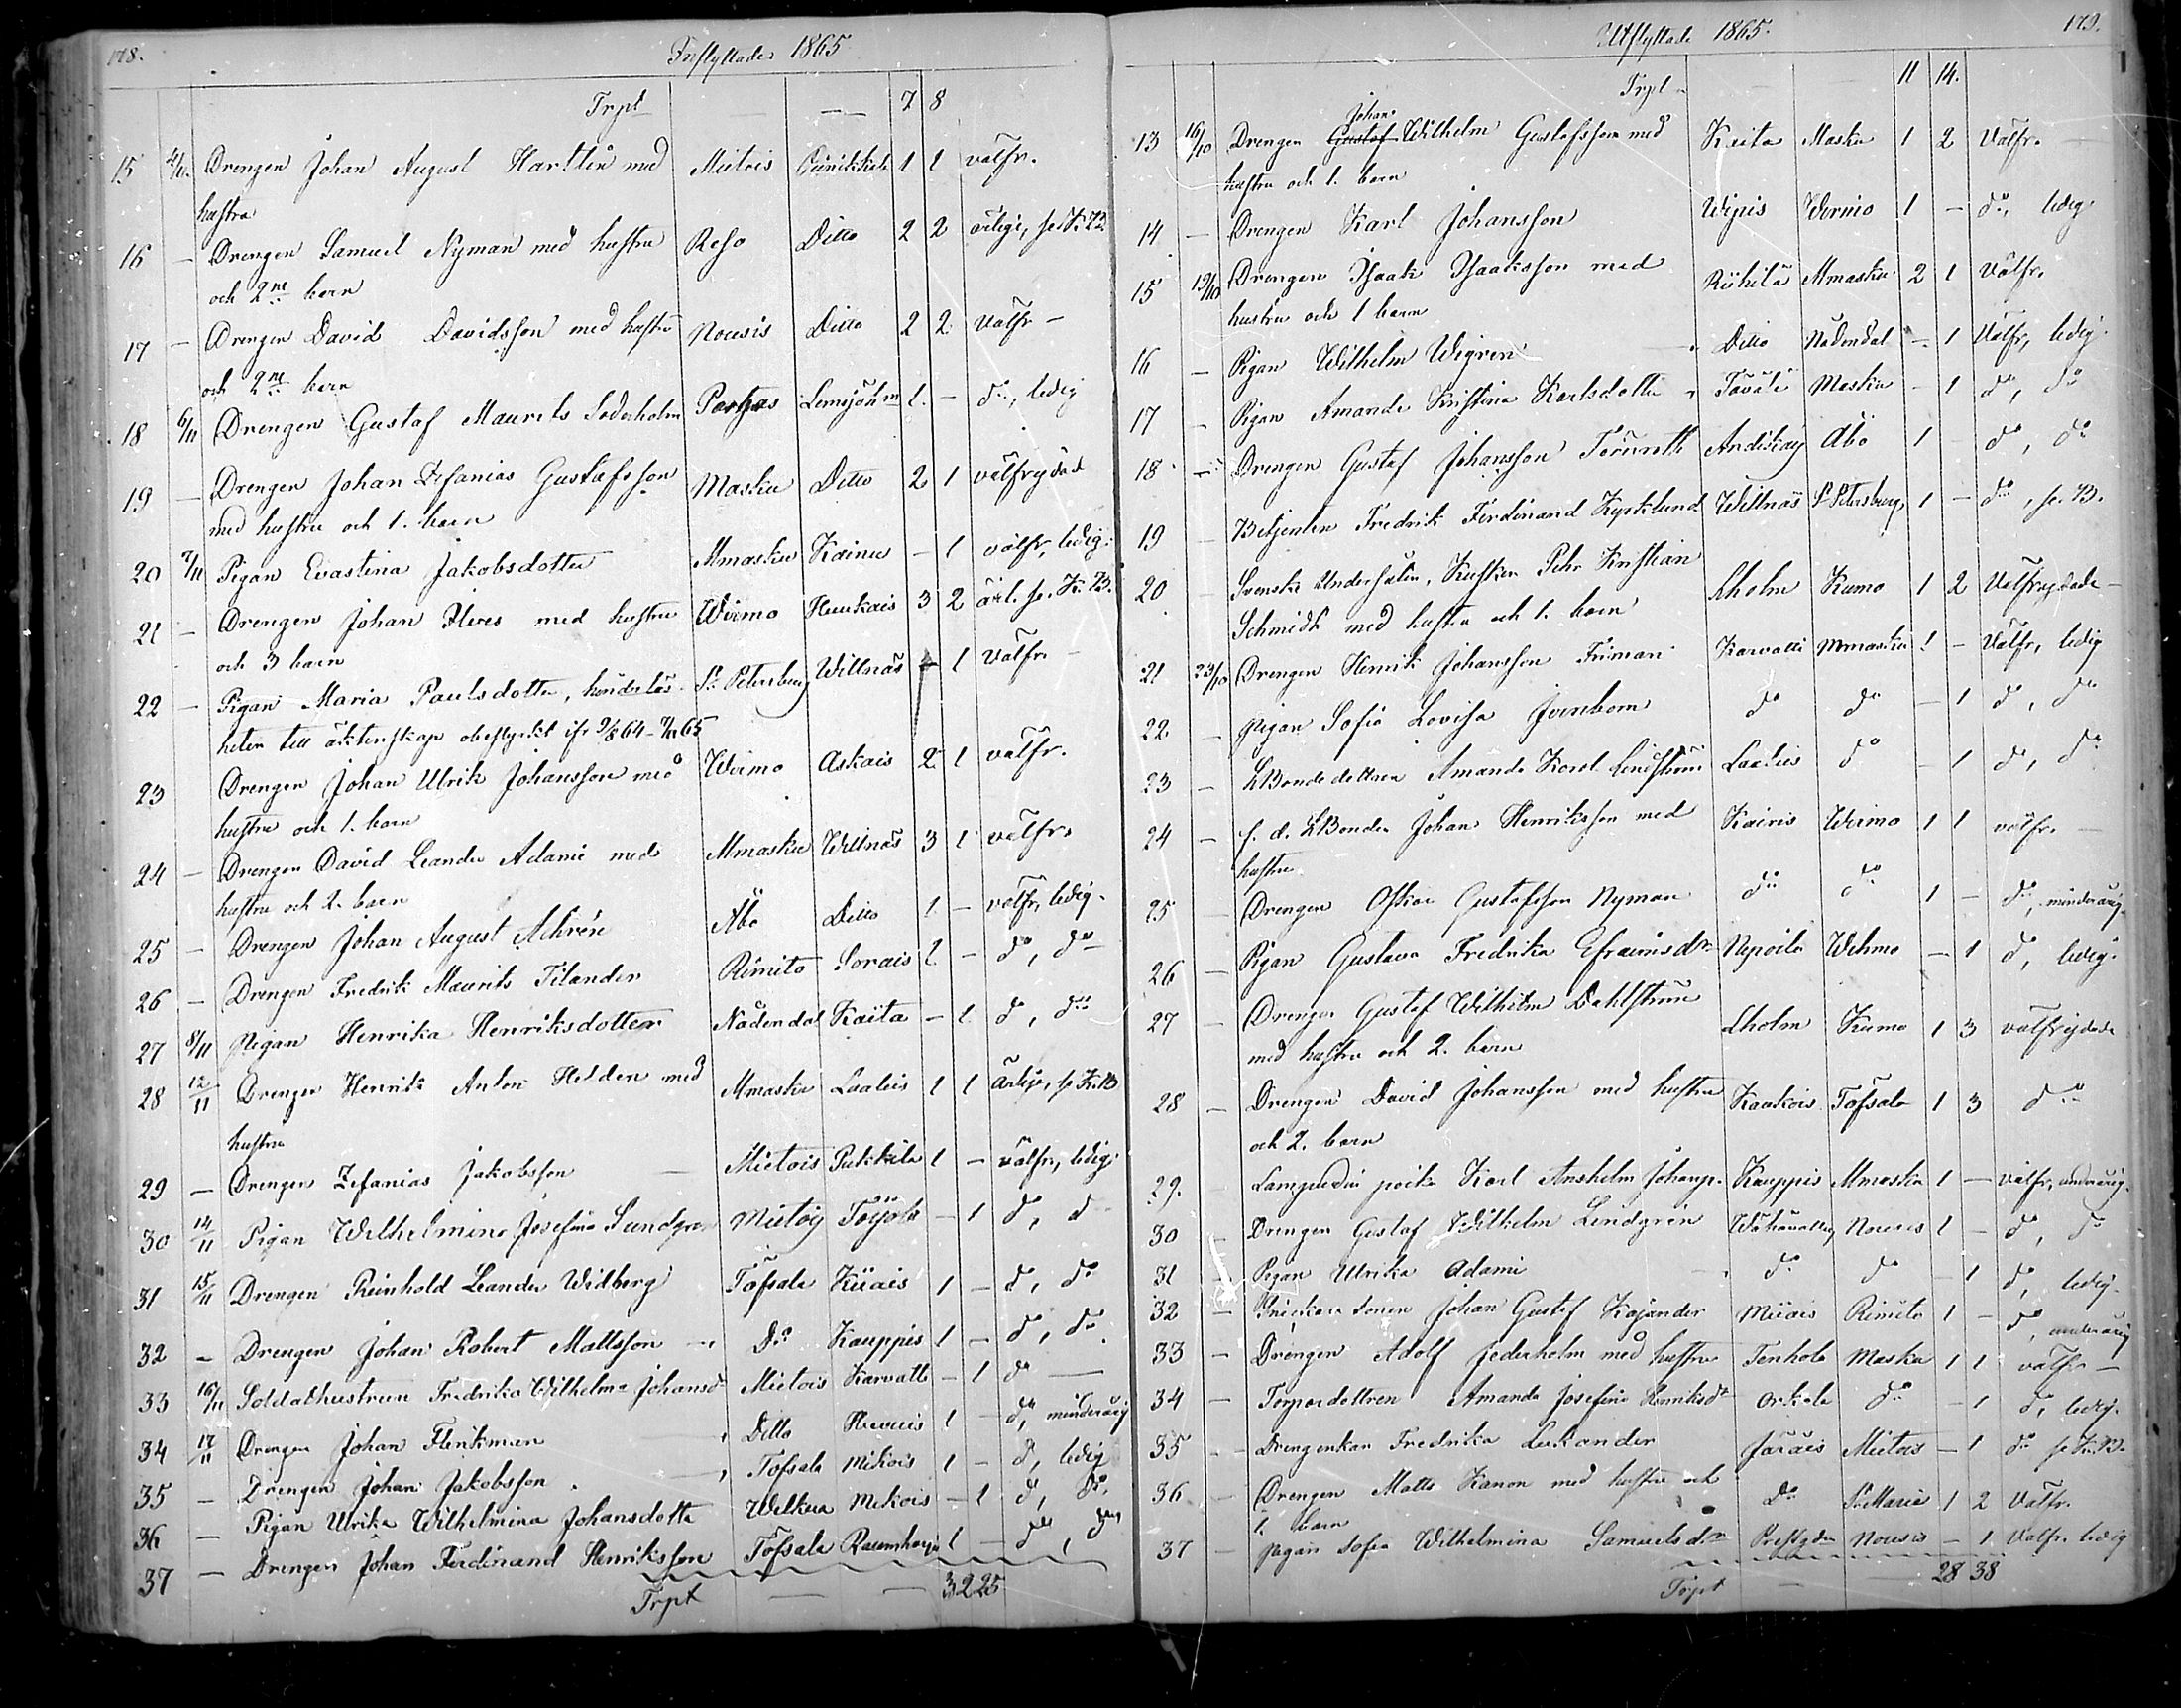 178.
Inflyttade 1865
Trpt — — 7 8
15 Drengen Johan August Harttin med Mietois 1 1 välfr.
hustru
16 — Drengen Samuel Nyman med hustru Reso Ditto 2 2 ärlige, se K.B.
och 2ne barn
17 — Drengen David Davidsson med hustru Nousis Ditto 2 2 välfr —
och 2ne barn
18 6/11 Drengen Gustaf Maurits Söderholm Pargas 1 — do, ledig
19 — Drengen Johan Zefanias Gustafsson Masku Ditto 2 1 välfrejdad
med hustru och 1. barn
20 7/11 Pigan Evastina Jakobsdotter Mmasku Kainu — 1 välfr, ledig
21 — Drengen Johan Ilves med hustru Wirmo Huukais 3 2 ärl. se. K. B.
och 3 barn
22 — Pigan Maria Paulsdotter, St Petersburg Willnäs 1 välfr. —
till äktenskap obestyrkt ifr 9/8 64 – 7/11 65
23 Drengen Johan Ulrik Johansson med Wirmo Askais 2 1 välfr.
hustru och 1. barn
24 — Drengen David Leander Adami med Mmasku Willnäs 3 1 välfr.
hustru och 2. barn
25 — Drengen Johan August Achrén Åbo Ditto 1 — välfr, ledig.
26 — Drengen Fredrik Maurits Tilander Rimito Sorais 1 — do, do
27 8/11 Pigan Henrika Henriksdotter Nådendal Kaita — 1 do, do
28 12/11 Drengen Henrik Anton Helden med Mmasku Laalis 1 1 ärlige, se K.B.
hustru
29 — Drengen Zefanias Jakobsson — Mietois Pukkila 1 — välfr, ledig
30 14/11 Pigan Wilhelmina Josefina Sundgren Mietois — 1 do, d
31 15/11 Drengen Reinhold Leander Widberg Töfsala Kiiais 1 — do, do
32 — Drengen Johan Robert Mattsson — Do Kauppis 1 — do, do
33 16/11 Soldathustrun Fredrika Wilhelma Johansd Mietois Karvatti — 1 do —
34 17/11 Drengen Johan Flinkman Ditto 1 — do, minderårig
35 — Drengen Johan Jakobsson Töfsala Mikois 1 — do, ledig
36 — Pigan Ulrika Wilhelmina Johansdotter Wilkua Mikois — 1 do, do,
37 — Drengen Johan Ferdinand Henriksson Töfsala 1 — do, do
Trpt — — 32 25
Utflyttade 1865.
179.
Trpt — 11 14.
Johan
13 16/10 Drengen Gustaf Wilhelm Gustafsson med Kaita Masku 1 2 Välfr.
hustru och 1. barn
14 — Drengen Karl Johansson Wirmo 1 — do, ledig
15 19/10 Drengen Isaak Isaaksson med Riihilä Mmasku 2 1 Välfr,
hustru och 1 barn
16 — Pigan Wilhelm Wigren Ditto Nådendal — 1 Välfr, ledig.
17 — Pigan Amanda Kristina Karlsdotter Masku — 1 do, do
18 — Drengen Gustaf Johansson Törnroth Åbo 1 — do, do
19 — Betjenten Fredrik Ferdinand Kycklund Willnäs St Petersburg 1 — do, se. B.
20 — Svenske Undersåten, Kusken Pehr Kristian
Schmidt med hustru och 1. barn Lholm Kumo 1 2 Välfrejdade —
21 23/10 Drengen Henrik Johansson Friman Karvatti Mmasku 1 — Välfr, ledig
22. — Pigan Sofia Lovisa Jernbom do do — 1 do, do
23 — LBondedottren Amanda Karol. Lindström Laalis do — 1 do, do
24 — f. d. LBonden Johan Henriksson med Kairis Wirmo 1 1 välfr. —
hustru
25 — Drengen Oskar Gustafsson Nyman do do 1 — do, minderårig
26 — Pigan Gustava Fredrika Efraimsdr Wehmo — 1 do, ledig.
27 — Drengen Gustaf Wilhelm Dahlström Lholm Kumo 1 3 välfrejdade
med hustru och 2. barn
28 — Drengen David Johansson med hustru Kaukois Töfsala 1 3 do
och 2. barn
29. Karl Anshelm Johanss. Kauppis Mmasku 1 — välfr, minderårig.
30 — Drengen Gustaf Wilhelm Lindgrén Nousis 1 — do, do
31 — Pigan Ulrika Adami do do — 1 do, ledig.
32 — sonen Johan Gustaf Kajander Miiais Rimito 1 — do, minderårig
33 — Drengen Adolf Jederholm med hustru Tenhola Masku 1 1 välfr —
34 — Torpardottren Amanda Josefina Henriksdr do — 1 do, ledig.
35 — Drengenkan Fredrika Lukander Mietois — 1 do se K.B.
36 — Drengen Matts Kanon med hustru och Do St Marie 1 2 Välfr.
1. barn
37 — Pigan Sofia Wilhelmina Samuelsdr Nousis — 1. Välfr. ledig
Trpt — — 28 38